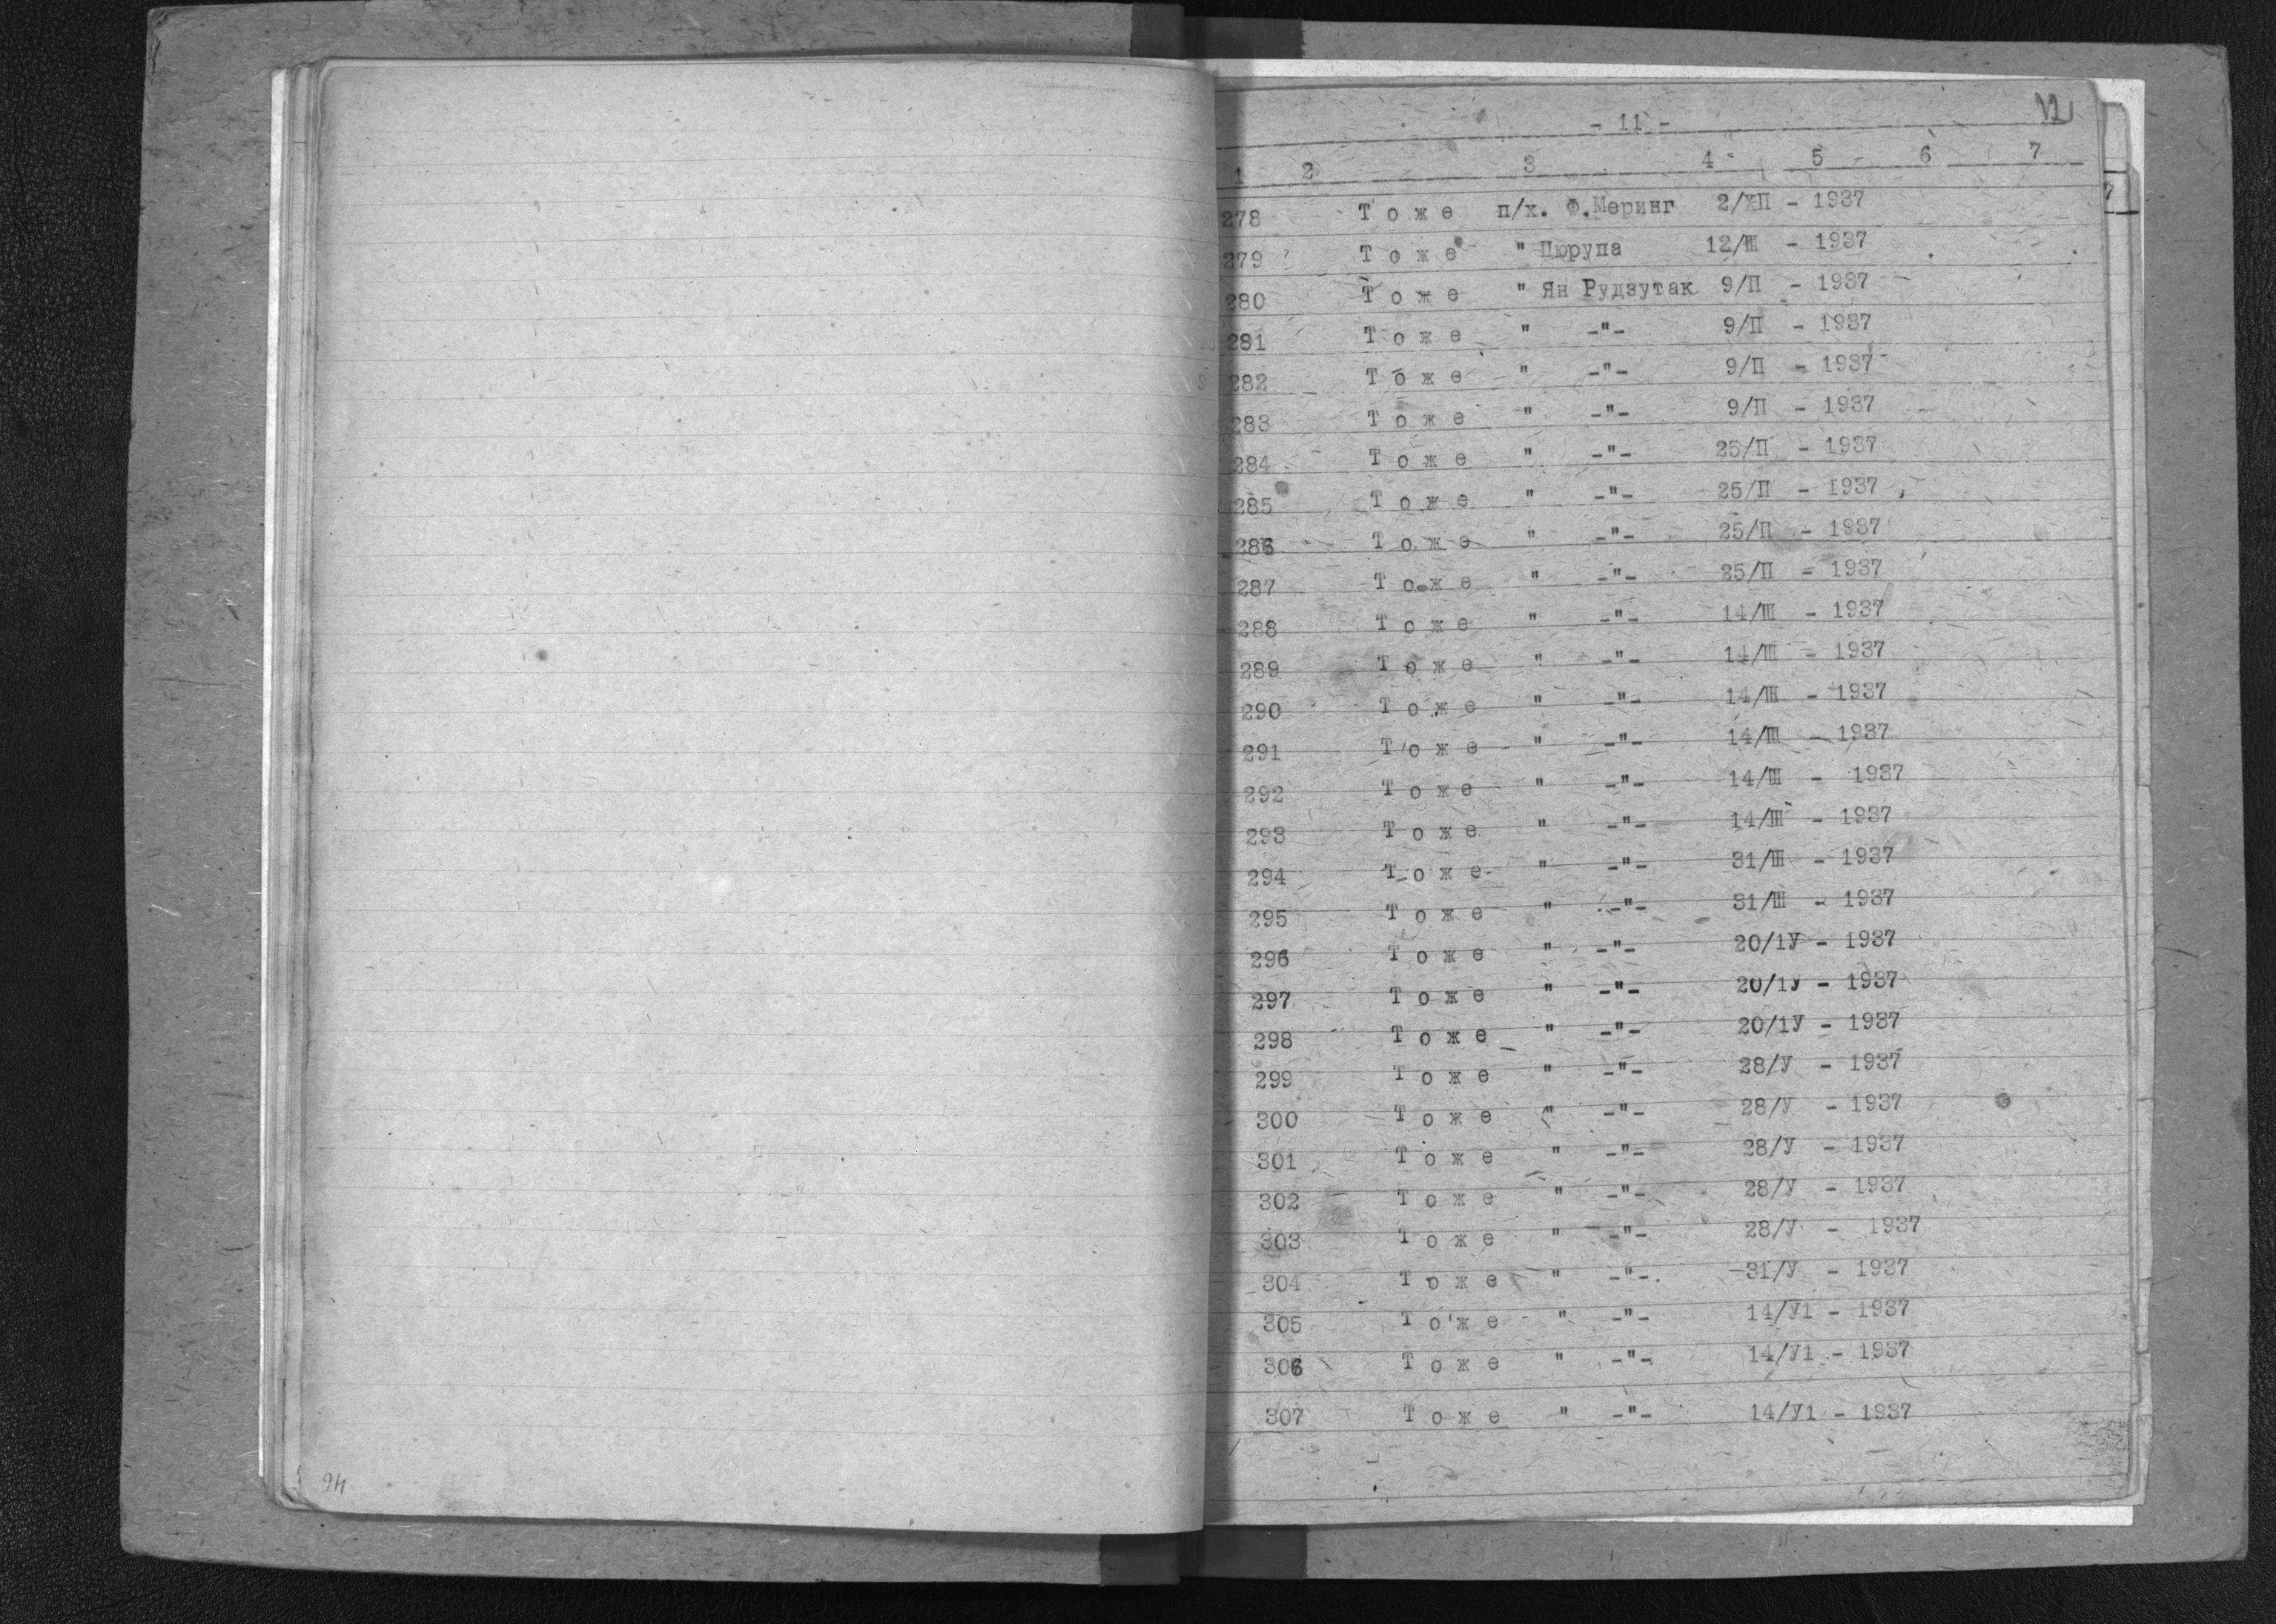 - 11 -
1 2 3 4 5 6 7
278 Тоже п/х. Ф.Меринг 2/ХП - 1937
279 Тоже " Цюрупа 12/Ш - 1937
280 Тоже " Ян Рудзутак 9/П - 1937
281 Тоже " -"- 9/П - 1937
282 Тоже " -"- 9/П - 1937
283 Тоже " -"- 9/П - 1937
284 Тоже " -"- 25/П - 1937
285 Тоже " -"- 25/П - 1937
286 Тоже " -"- 25/П - 1937
287 Тоже " -"- 25/П - 1937
288 Тоже " -"- 14/Ш - 1937
289 Тоже " -"- 14/Ш - 1937
290 Тоже " -"- 14/Ш - 1937
291 Тоже " -"- 14/Ш - 1937
292 Тоже " -"- 14/Ш - 1937
293 Тоже " -"- 14/Ш - 1937
294 Тоже " -"- 31/Ш - 1937
295 Тоже " -"- 31/Ш - 1937
296 Тоже " -"- 20/1У - 1937
297 Тоже " -"- 20/1У - 1937
298 Тоже " -"- 20/1У - 1937
299 Тоже " -"- 28/У - 1937
300 Тоже " -"- 28/У - 1937
301 Тоже " -"- 28/У - 1937
302 Тоже " -"- 28/У - 1937
303 Тоже " -"- 28/У - 1937
304 Тоже " -"- 31/У - 1937
305 Тоже " -"- 14/У1 - 1937
306 Тоже " -"- 14/У1 - 1937
307 Тоже " -"- 14/У1 - 1937